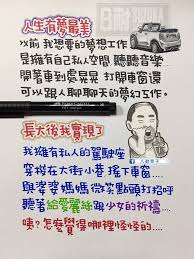 人生有夢最美
以前 我想要的夢想工作
是擁有自己私人空間 聽聽音樂…
開著車到處晃晃 打開車窗還
可以跟人聊聊天的夢幻工作。
長大後我實現了
我擁有私人的駕駛座
穿梭在大街小巷 搖下車窗…
與婆婆媽媽 微笑點頭打招呼
聽著給愛麗絲跟少女的祈禱…
咦?怎麼覺得哪裡怪怪的….